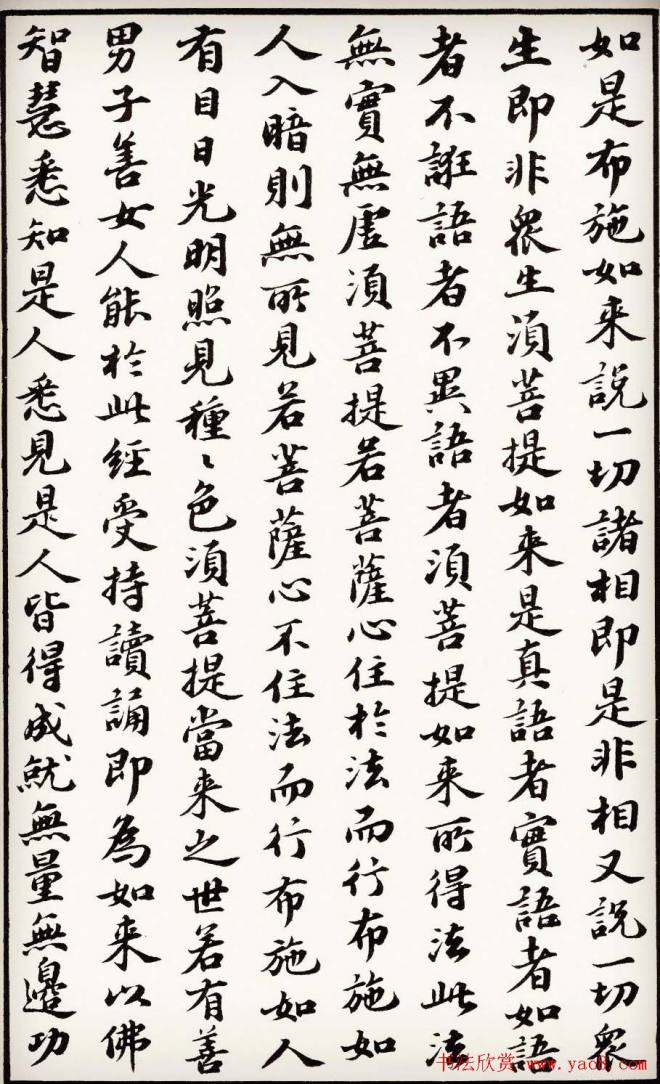 如是布施如来說一切諸相即是非相又說一切衆
生即非衆生須菩提如来是真語者實語者如語
者不誑語者不異語者須菩提如来所得法此法
無實無虛須菩提若菩薩心住於法而行布施如
人入暗則無所見若菩薩心不住法而行布施如人
有目日光明照見種〻色須菩提當来之世若有善
男子善女人能於此經受持讀誦即為如来以佛
智慧悉知是人悉見是人皆得成就無量無邊功
书法欣赏:www.yac8.com